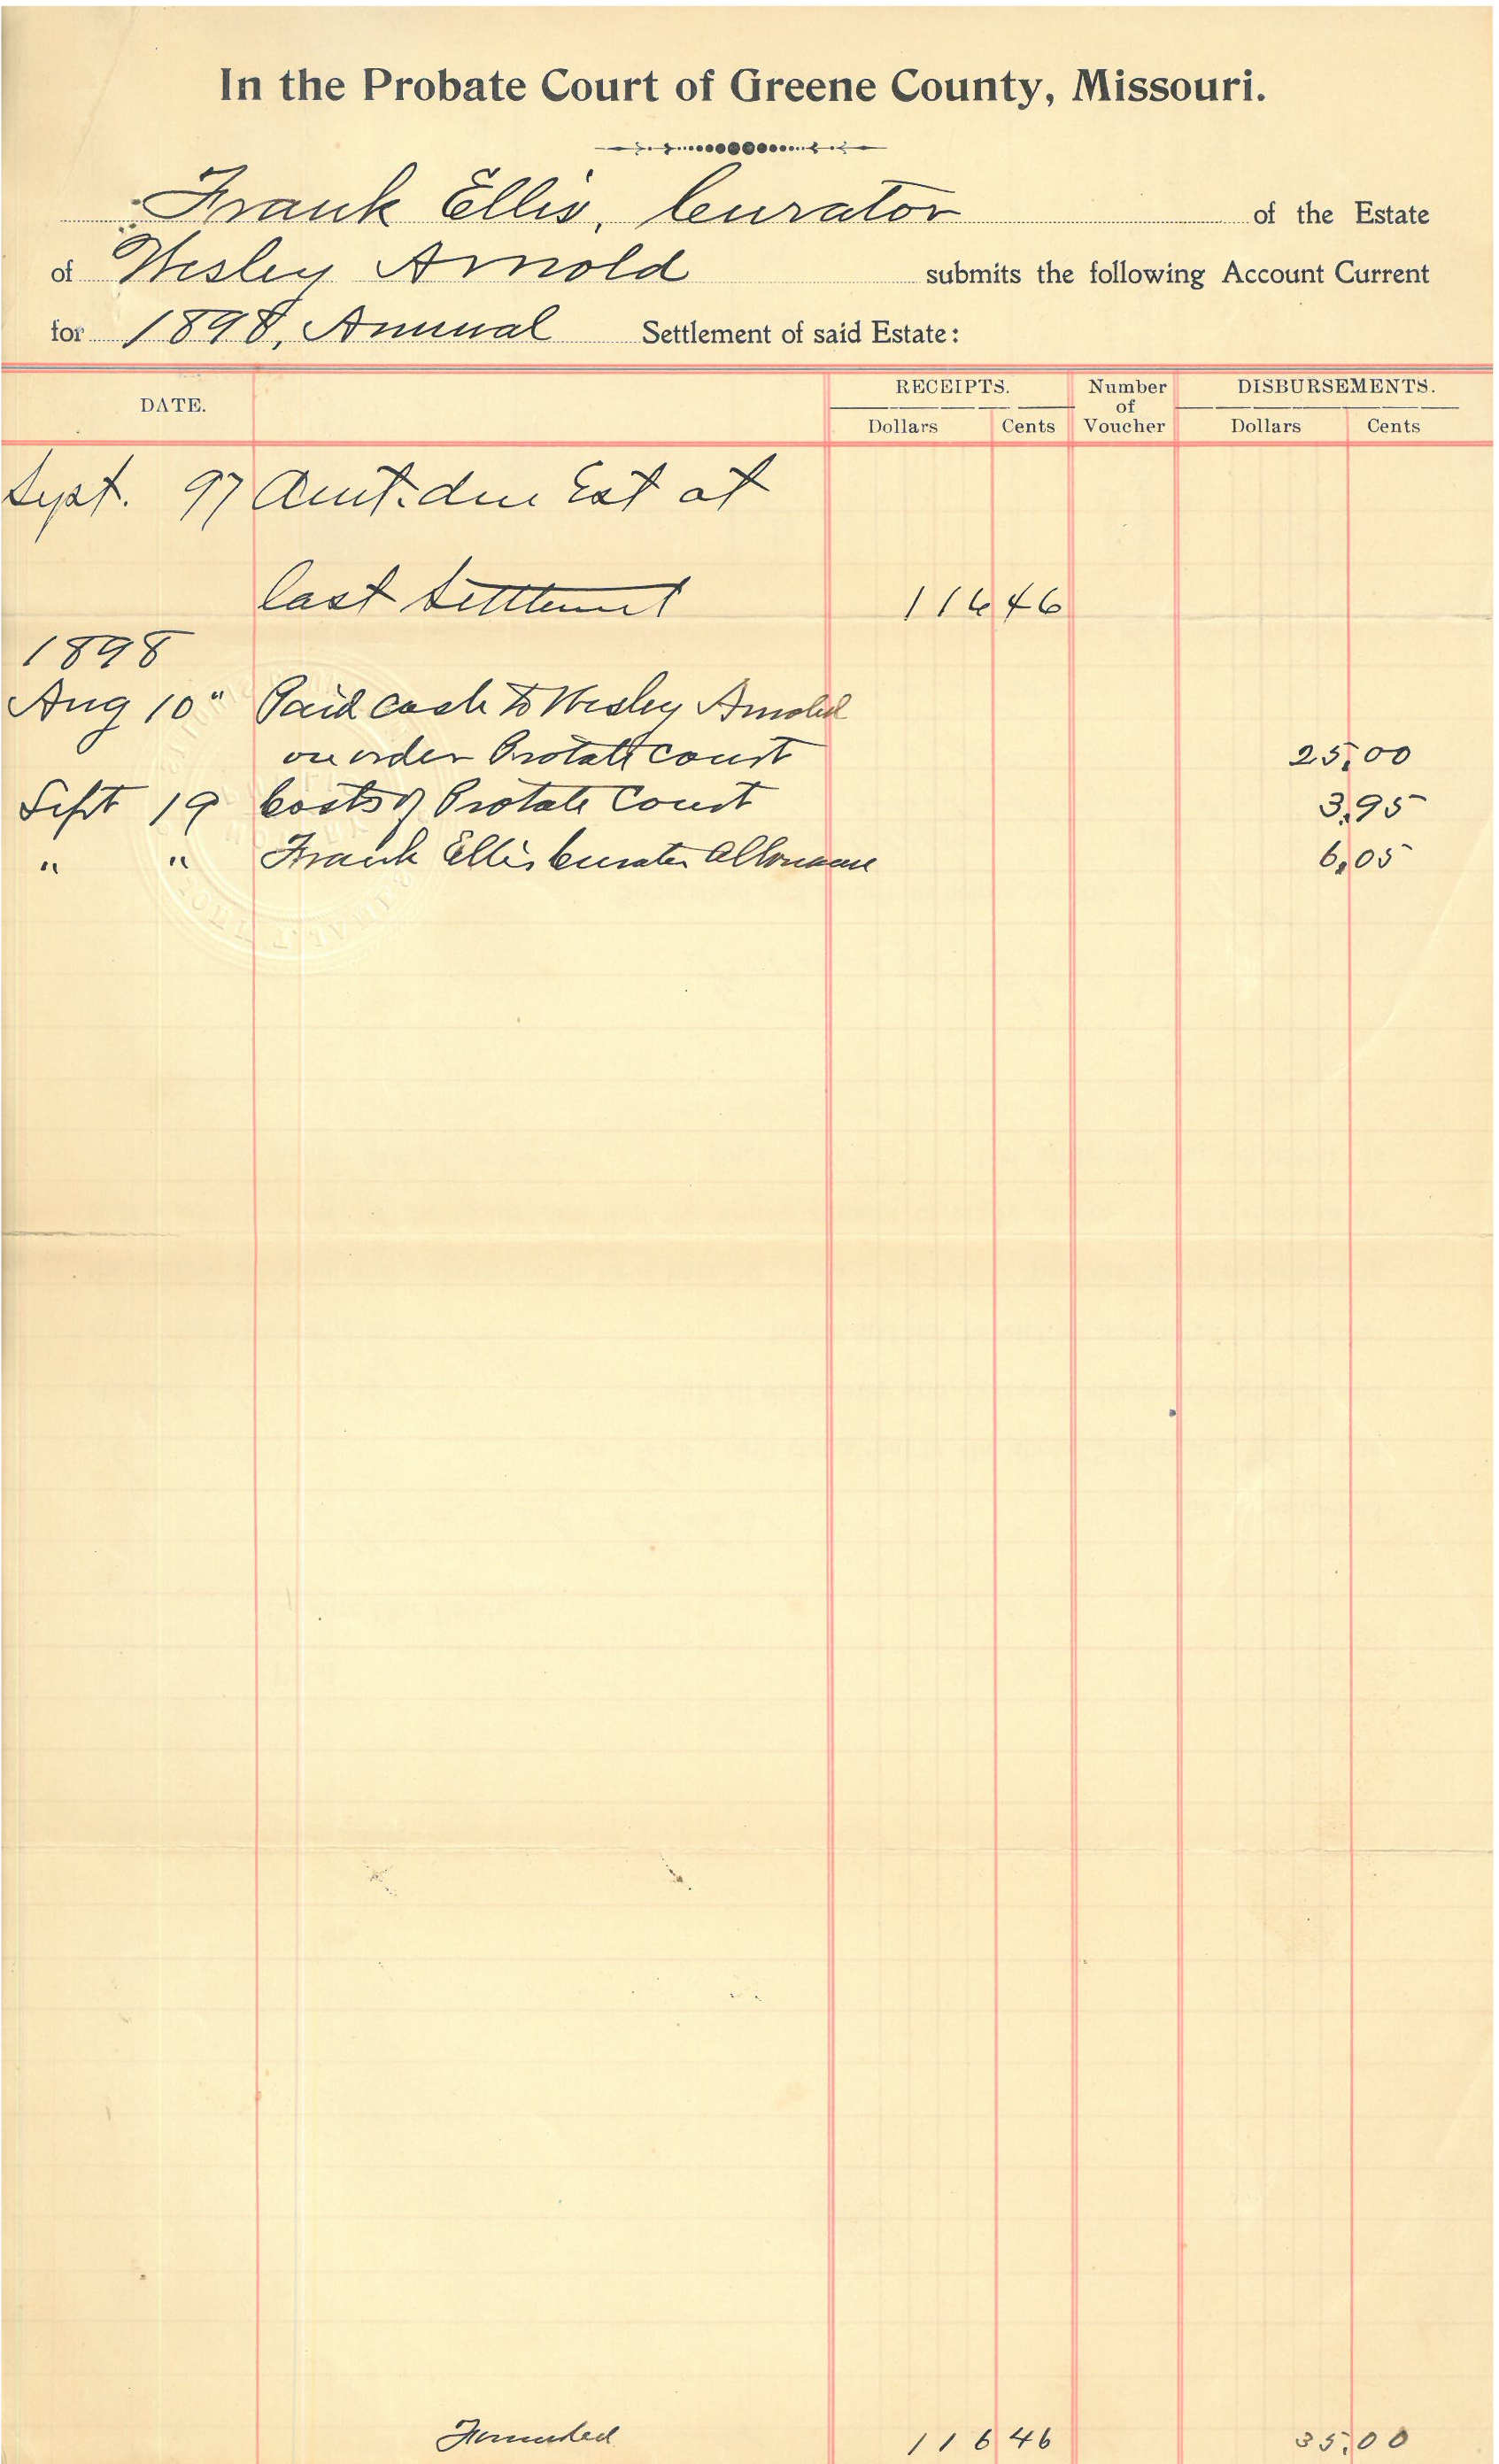 In the Probate Court of Greene County, Missouri.
Frank Ellis, Curator of the Estate
of Wesley Arnold submits the following Account Current
for 1898, Annual Settlement of said Estate:
DATE. RECEIPTS. Number of Voucher DISBURSEMENTS.
Dollars Cents Dollars Cents
Sept. 97 Amt. due Est at
last Settlement 116 46
1898
Aug 10" Paid cash to Wesley Arnold
on order Probate Court 25,00
Sept 19 Costs of Probate Court 3,95
" " Frank Ellis Curator Allowance 6,05
Forwarded 116 46 35,00